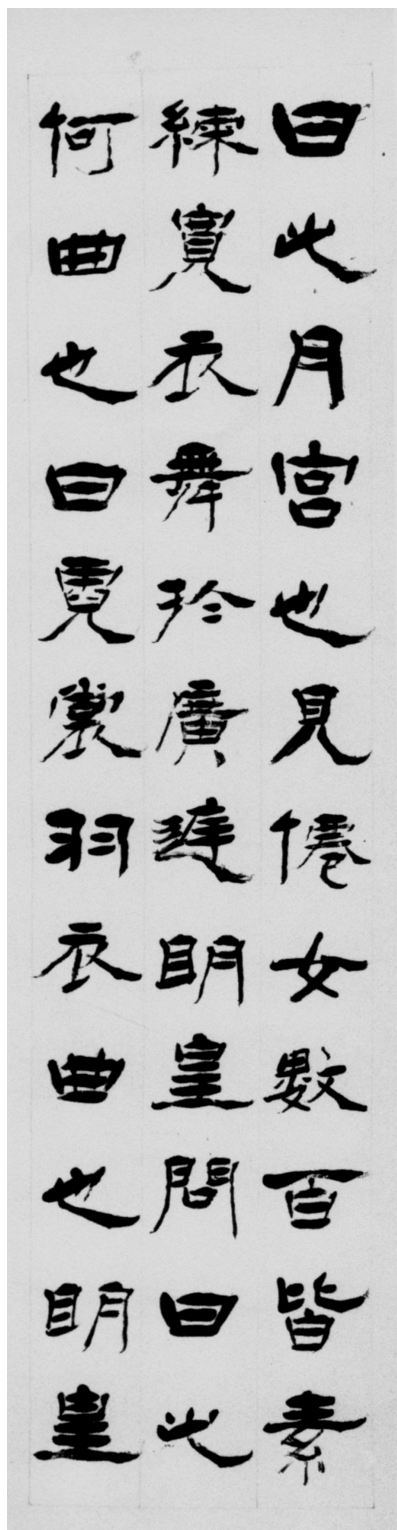 曰此月宮也見僊女數百皆素
練寬衣舞於廣廷明皇問曰此
何曲也曰霓裳羽衣曲也明皇